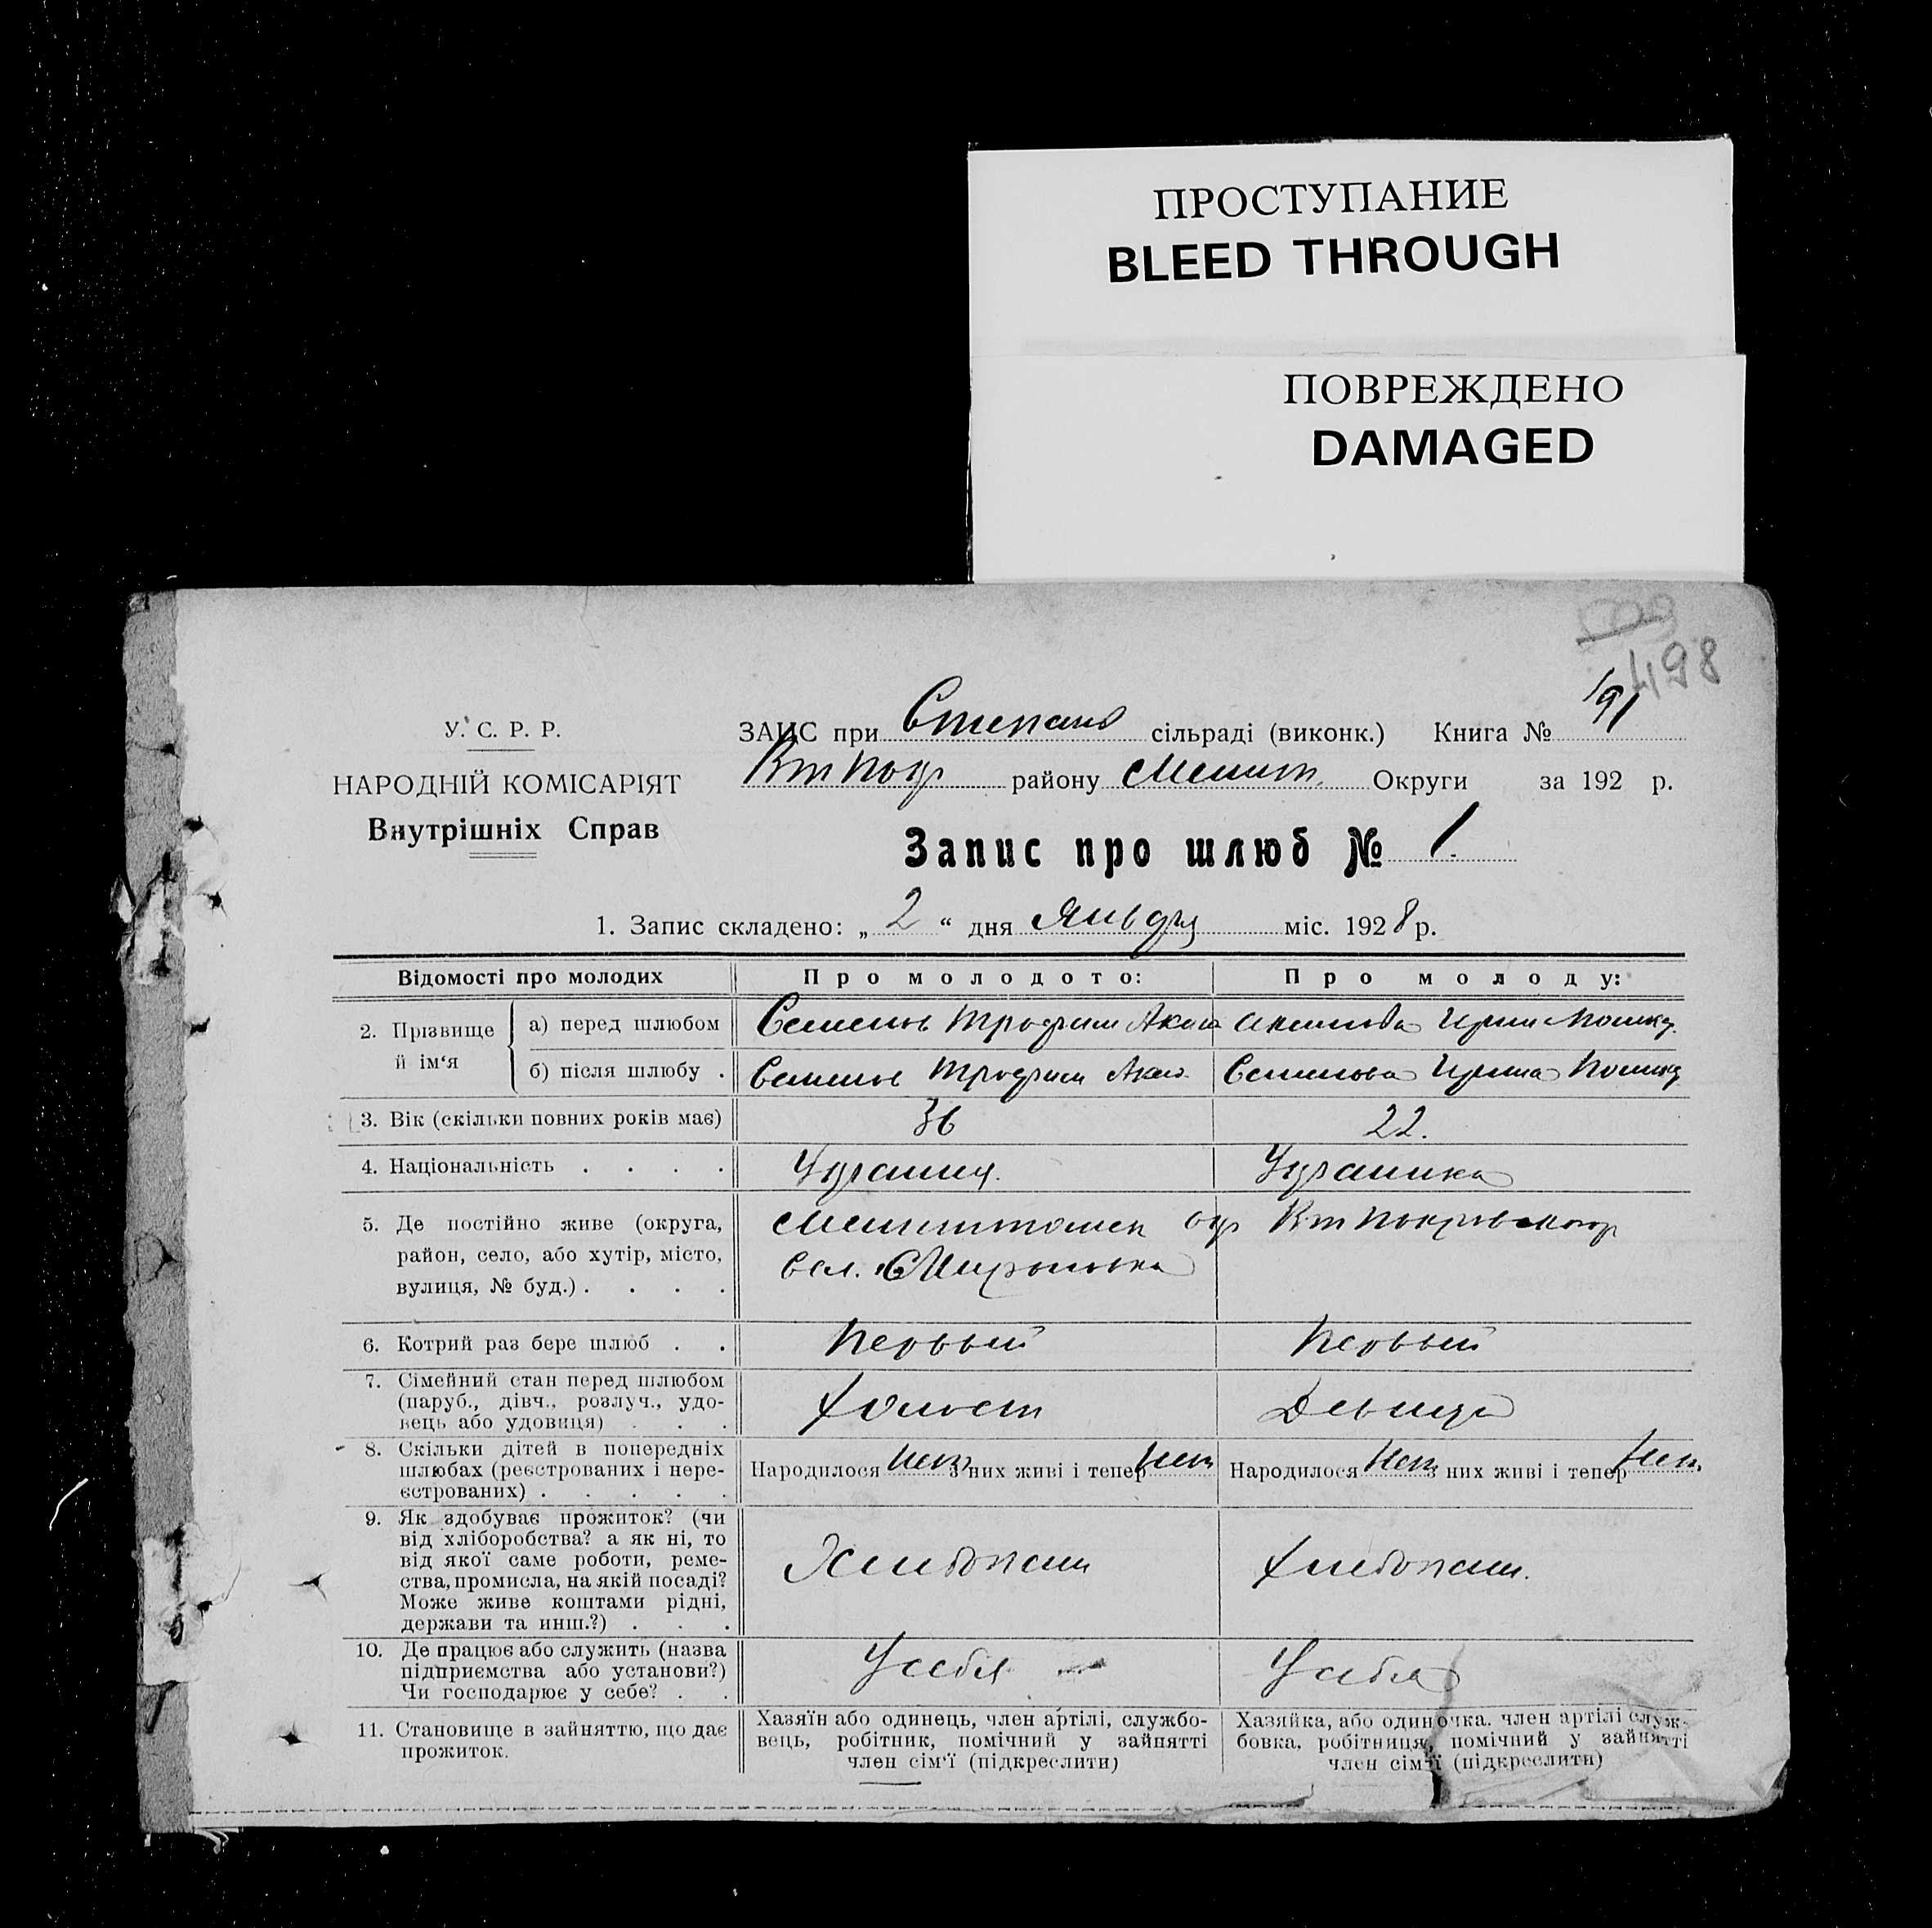 ПРОСТУПАНИЕ
BLEED THROUGH
ПОВРЕЖДЕНО
DAMAGED
498
У. С. Р. Р.
НАРОДНІЙ КОМІСАРІЯТ
Внутрішніх Справ
ЗАГС при Степано сільраді (виконк.) Книга № 191
Вт Покр району Мелит. Округи за 192 р.
Запис про шлюб № 1.
1. Запис складено: „ 2 “ дня Января міс. 1928 р.
Відомості про молодих Про молодого: Про молоду:
2. Прізвище й ім‘я
а) перед шлюбом Семенов Трофим Ирина
б) після шлюбу . Семенов Трофим Семенова Ирина
3. Вік (скільки повних років має) 36 22.
4. Національність . . . . Украинц. Украинка
5. Де постійно живе (округа, Мелитополск окр Вт Покровского р
район, село, або хутір, місто, сел.
вулиця, № буд.) . . . .
6. Котрий раз бере шлюб . . Первый Первый
7. Сімейний стан перед шлюбом
(паруб., дівч., розлуч., удо- Холост Девица
вець або удовиця) . . .
8. Скільки дітей в попередніх
шлюбах (реєстрованих і нере- Народилося нет з них живі і тепер нет Народилося нет з них живі і тепер нет.
єстрованих) . . . . .
9. Як здобуває прожиток? (чи
від хліборобства? а як ні, то
від якої саме роботи, реме- Хлебопаш Хлебопаш.
ства, промисла, на якій посаді?
Може живе коштами рідні,
держави та инш.?) . . .
10. Де працює або служить (назва
підприємства або установи?) У себя У себя
Чи господарює у себе? . .
11. Становище в зайняттю, що дає
прожиток.
Хазяїн або одинець, член артілі, службо-
вець, робітник, помічний у зайнятті
член сім‘ї (підкреслити)
Хазяйка, або одиночка. член артілі служ-
бовка, робітниця, помічний у зайнятті
член сім‘ї (підкреслити)